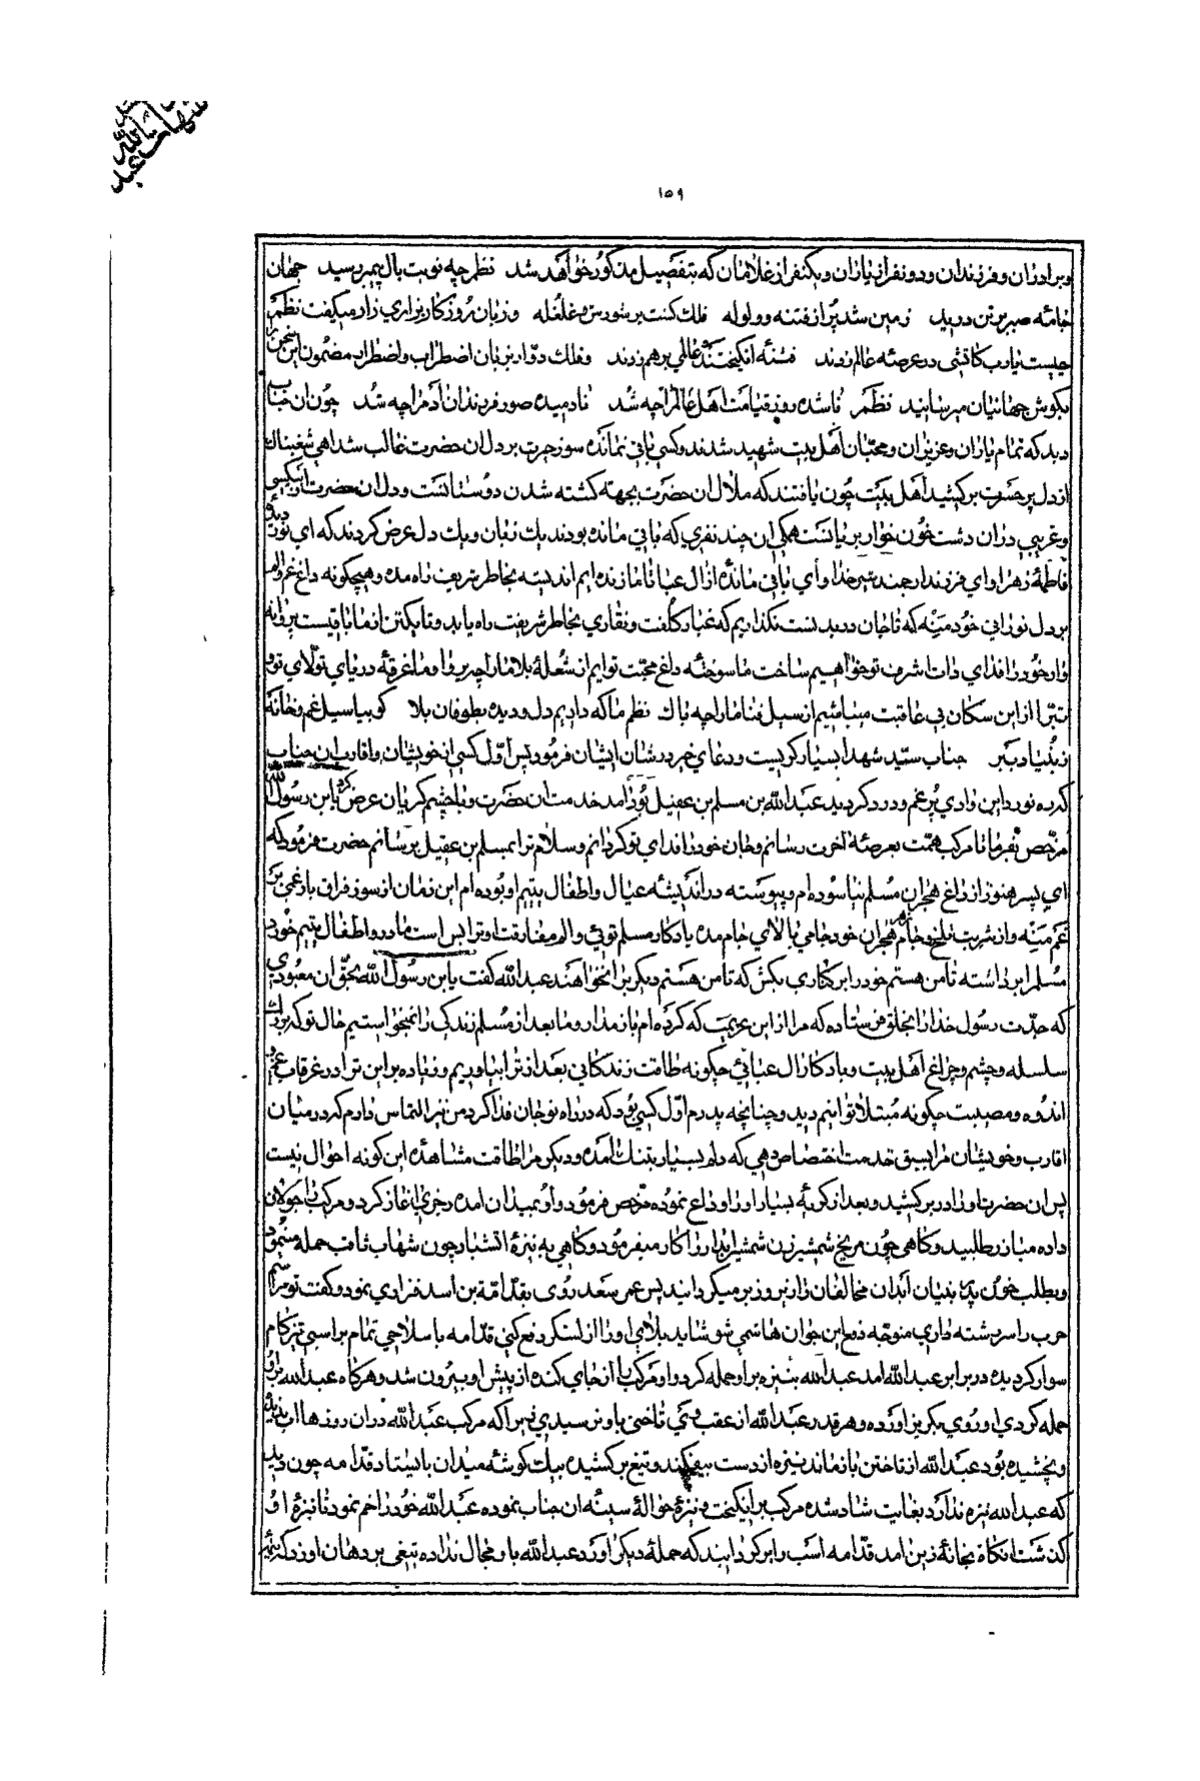 شهادت عبد الله
۱۵۹
و برادران و فرزندان و دو نفر از یاران و یکنفر از غلامان که بتفصیل مذکور خواهد شد نظم چه نوبت بال پیمبر رسید جهان
جامه صبر بر تن درید زمین شد پر از فتنه و ولوله فلك کشت پر شورش و غلغله و زبان روزکار بزاری زار میکفت نظم
چیست یارب کاتشی در عرصه عالم زدند فتنه انکیختند عالمی برهم زدند و فلك دوار بزبان اضطراب و اضطرار مضمون این سخن را
بکوش جهانیان میرسانید نظم ناشده روز قیامت اهل عالم را چه شد نادمیده صور فرزندان آدم را چه شد چون ان جناب
دید که تمام یاران و عزیزان و محبان اهل بیت شهید شدند و کسی باقی نمانده سوز حیرت بر دل ان حضرت غالب شد اهی شغبناك
از دل پر حسرت برکشید اهل بیت چون یافتند که ملال ان حضرت بجهته کشته شدن دوستانست و دل ان حضرت از بیکسی
و غریبی در ان دشت خون خوار بر یانست همکی این چند نفری که باقی مانده بودند یك زبان و یك دل عرض کردند که ای نور دیده
فاطمهٔ زهرا و ای فرزند ارجمند شیر خدا و ای باقی ماندهٔ از ال عبا تا ما زنده ایم اندیشه بخاطر شریف راه مده و هیچکونه داغ غم و الم
بر دل نورانی خود منه که تا جان در بدنست نکذاریم که غبار کلفت و نقاری بخاطر شریفت راه یابد و تا یکتن از ما باقیست پروانه
وار خود را فدای ذات اشرف تو خواهیم ساخت ما سوخته داغ محبت توایم از شعلهٔ بلا ما را چه پروا و ما غرقهٔ دریای تولای تو و
تبرا از این سکان بی عاقبت میباشیم از سیل فنا ما را چه باك نظم ما که دادیم دل و دیده بطوفان بلا کو بیا سیل غم و خانهٔ
ز بنیاد ببر جناب سید شهدا بسیار کریست و دعای خیر در شان ایشان فرمود پس اول کسی از خویشان و اقارب ان جناب
که ره نورد این وادی پر غم و درد کردید عبد الله بن مسلم بن عقیل بود امد خدمت ان حضرت و با چشم کریان عرض کرد یابن رسول الله
مرخص بفرما تا مرکب همت بعرصهٔ آخرت رسانم و جان خود را فدای تو کردانم و سلام ترا بمسلم بن عقیل برسانم حضرت فرمود که
ای پسر هنوز از داغ هجران مسلم نیاسوده ام و پیوسته در اندیشه عیال و اطفال یتیم او بوده ام این زمان از سوز فراق بار غمی بر
غمم منه و از شربت تلخ و جام هجران خود جامی بالای جام مده یادکار مسلم توئی و الم مفارقت او ترا بس است مادر و اطفال یتیم خود
مسلم را برداشته تا من هستم خود را برکناری بکش که تا من هستم دیکریرا نخواهند عبد الله کفت یابن رسول الله بحق ان معبودی
که جدت رسول خدا را بخلق فرستاده که مرا از این عزیمت که کرده ام باز مدار و ما بعد از مسلم زندکی را نمیخواستیم حال تو که بزرك
سلسله و چشم و چراغ اهل بیت و یادکار ال عبائی چکونه طاقت زندکانی بعد از ترا بیاوریم و زیاده بر این ترا در غرقاب غم و
اندوه و مصیبت چکونه مبتلا توانیم دید و چنانچه پدرم اول کسی بود که در راه تو جان فدا کرد من نیز التماس دارم که در میان
اقارب و خویشان مرا بسبق خدمت اختصاص دهی که دلم بسیار بتنك آمده و دیکر مرا طاقت مشاهده این کونه احوال نیست
پس ان حضرت او را در بر کشید و بعد از کریهٔ بسیار او را وداع نموده مرخص فرمود و او بمیدان امده رجزی اغاز کرد و مرکب را جولان
داده مبارز طلبید و کاهی چون مریخ شمشیر زن شمشیر ابدار را کار میفرمود و کاهی به نیزهٔ اتشبار چون شهاب ثاقب حمله مینمود
و بطلب خون پدر بنیان ابدان مخالفان را زیر و زبر میکردانید پس عمر سعد روی بقدامة بن اسد فزاری نمود و کفت تو مراسم
حرب را سررشته داری متوجه دفع این جوان هاشمی شو شاید بلای او را از لشکر دفع کنی قدامه با سلاحی تمام بر اسبی تیز کام
سوار کردیده در برابر عبد الله امد عبد الله بنیزه بر او حمله کرد و او مرکب را از جای کنده از پیش او بیرون شد و هرکاه عبد الله بر او
حمله کردی او روی بکریز اورده و هر قدر عبد الله از عقب وی تاختی باو نرسیدی زیرا که مرکب عبد الله در ان روزها اب ندیده
و نچشیده بود عبد الله از تاختن باز ماند نیزه از دست بیفکند و تیغ برکشیده بیك کوشه میدان بایستاد قدامه چون دید
که عبد الله نیزه ندارد بغایت شاد شده مرکب برانکیخت و نیزهٔ حوالهٔ سینه ان جناب نموده عبد الله خود را خم نمود تا نیزهٔ او
کذشت انکاه بخانهٔ زین امد قدامه اسب را برکردانید که حملهٔ دیکر اورد عبد الله باو مجال نداده تیغی بر دهان او زد که